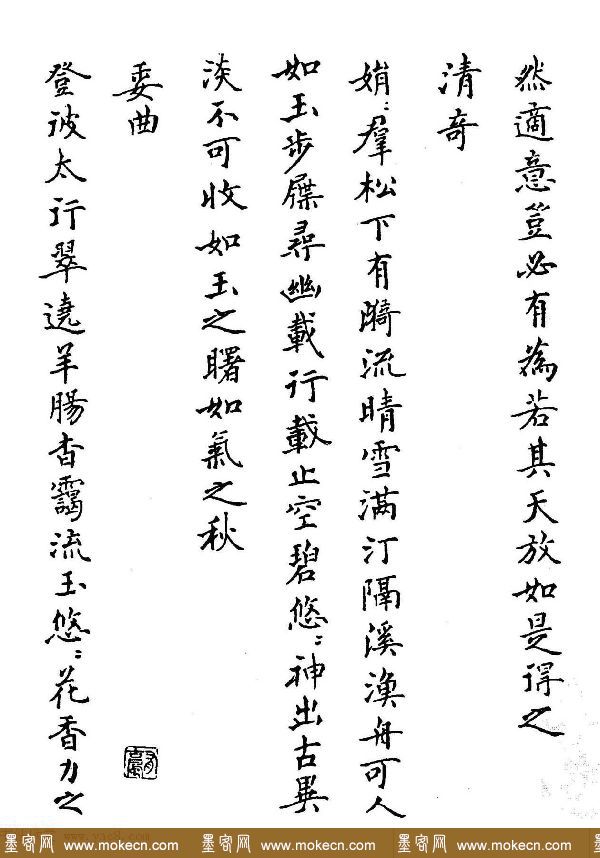 然適意豈必有為若其天放如是得之
清奇
娟：羣松下有漪流晴雪満汀隔溪漁舟可人
如玉步屧尋幽載行載止空碧悠：神出古異
淡不可收如玉之曙如氣之秋
委曲
登彼太行翠遶羊腸杳靄流玉悠：花香力之
墨客网 www.mokecn.com 墨客网 www.mokecn.com 墨客网 www.mokecn.com 墨客网 www.mokecn.com